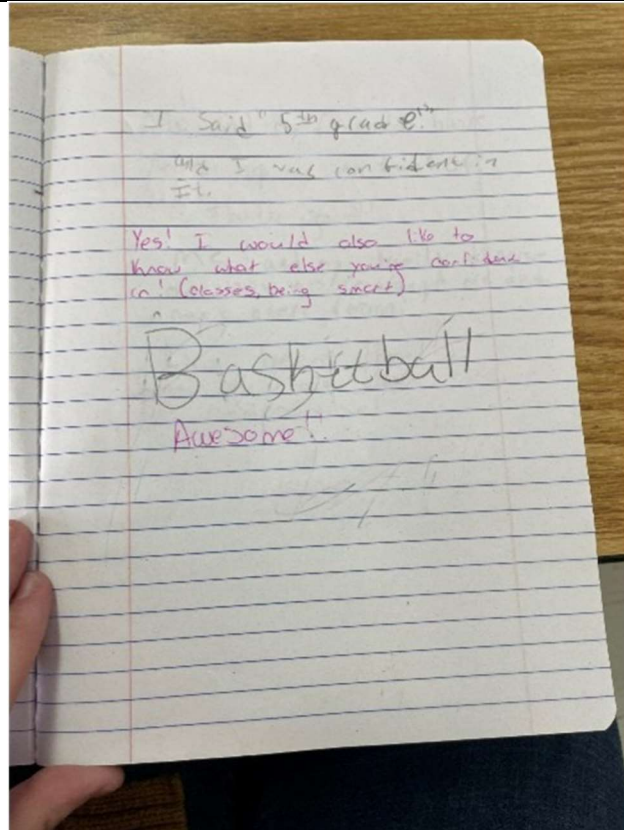 I Said "5th grade!"
and I was confident in
It.
Yes! I would also like to
know what else you're confident
in! (classes, being smart)
Basketball
Awesome!